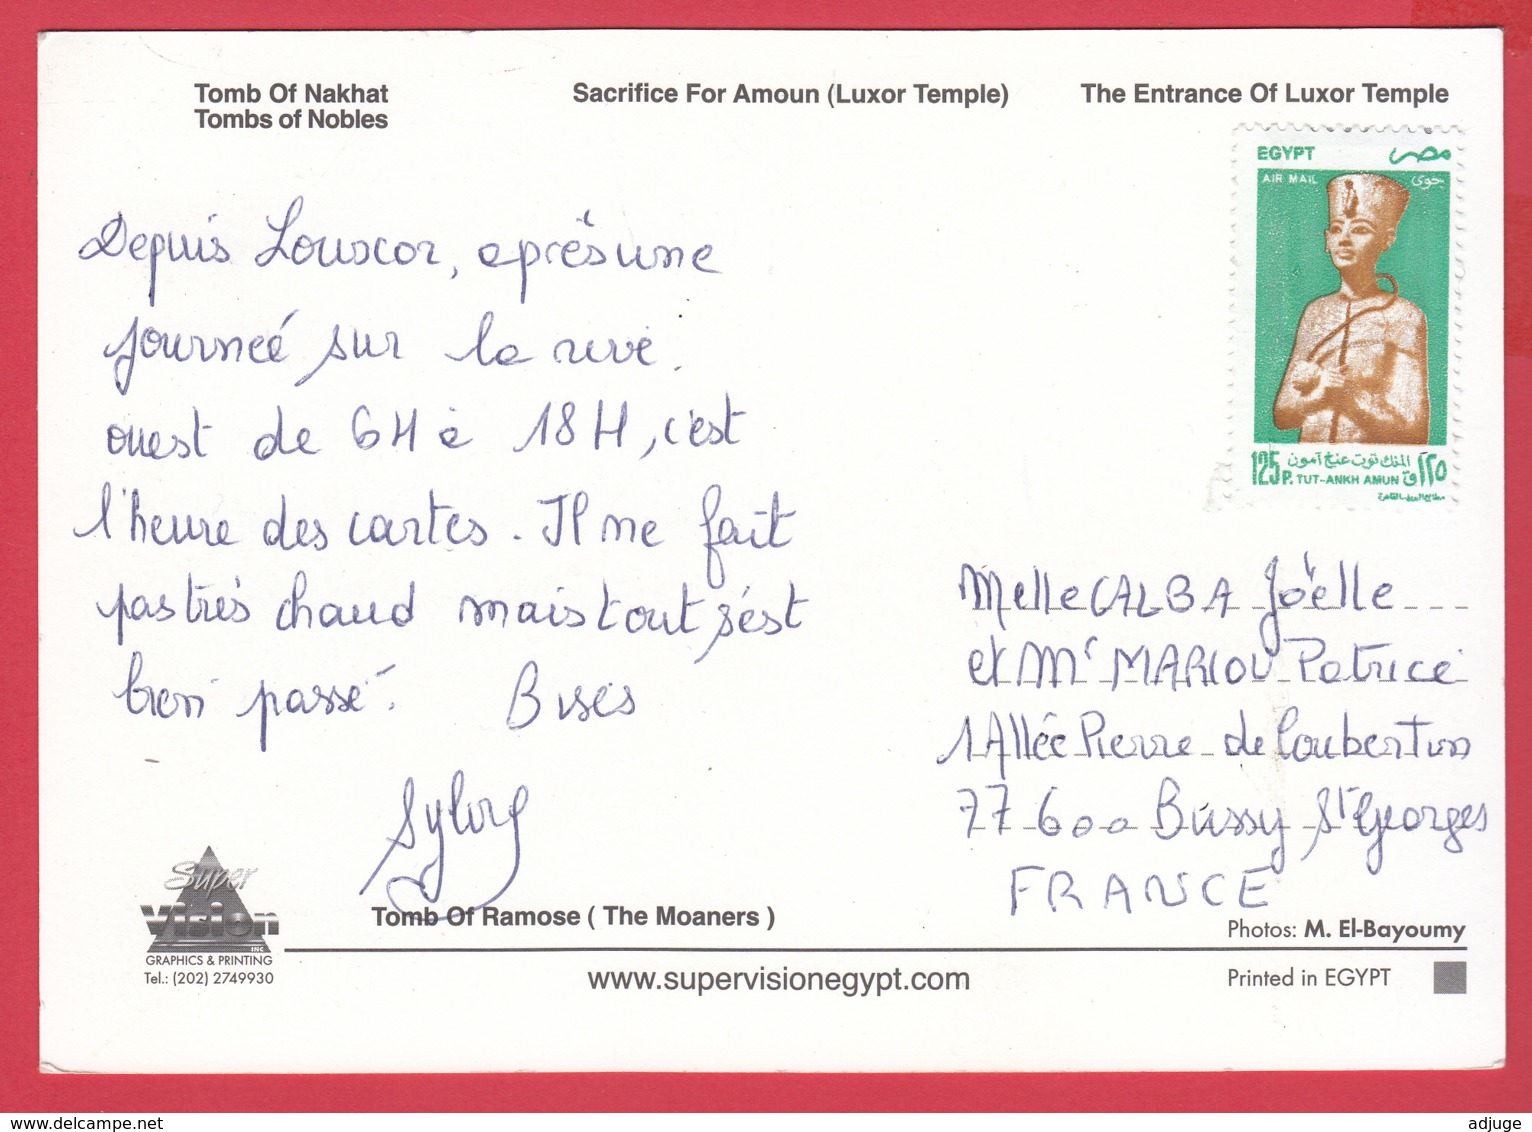 Tomb Of Nakhat
Tombs of Nobles
Sacrifice For Amoun (Luxor Temple)
The Entrance Of Luxor Temple
EGYPT مصر
AIR MAIL جوى
125 P. الملك توت عنخ آمون ١٢٥ ق
TUT-ANKH AMUN
Depuis Louxor, après une
journeé sur la rive
ouest de 6H à 18H, c'est
l'heure des cartes. Il ne fait
pas très chaud mais tout s'est
bien passé. Bises
Melle CALBA Joëlle
et Mr MARIOU Patrice
1 Allée Pierre de Coubertin
77600 Bussy St Georges
FRANCE
Super
Vision
INC
GRAPHICS & PRINTING
Tel.: (202) 2749930
Tomb Of Ramose ( The Moaners )
Photos: M. El-Bayoumy
www.supervisionegypt.com
Printed in EGYPT
www.delcampe.net
adjuge